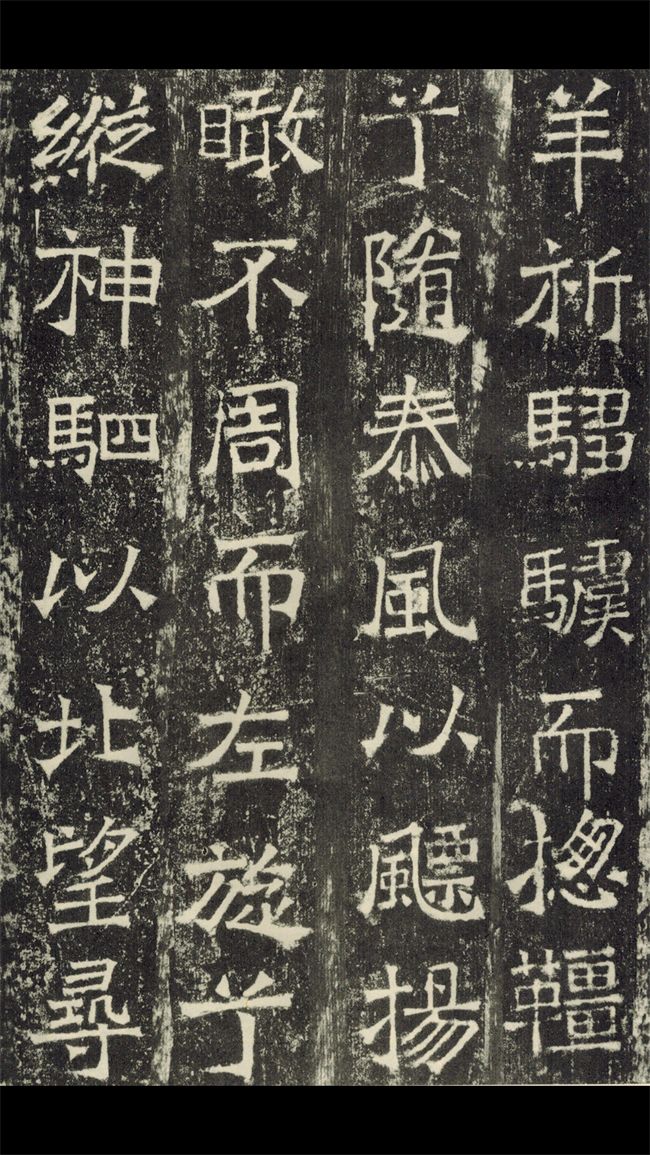 羊祈騶虞而摠韁
兮隨泰風以飃揚
瞰不周而左旋兮
縱神駟以北望尋